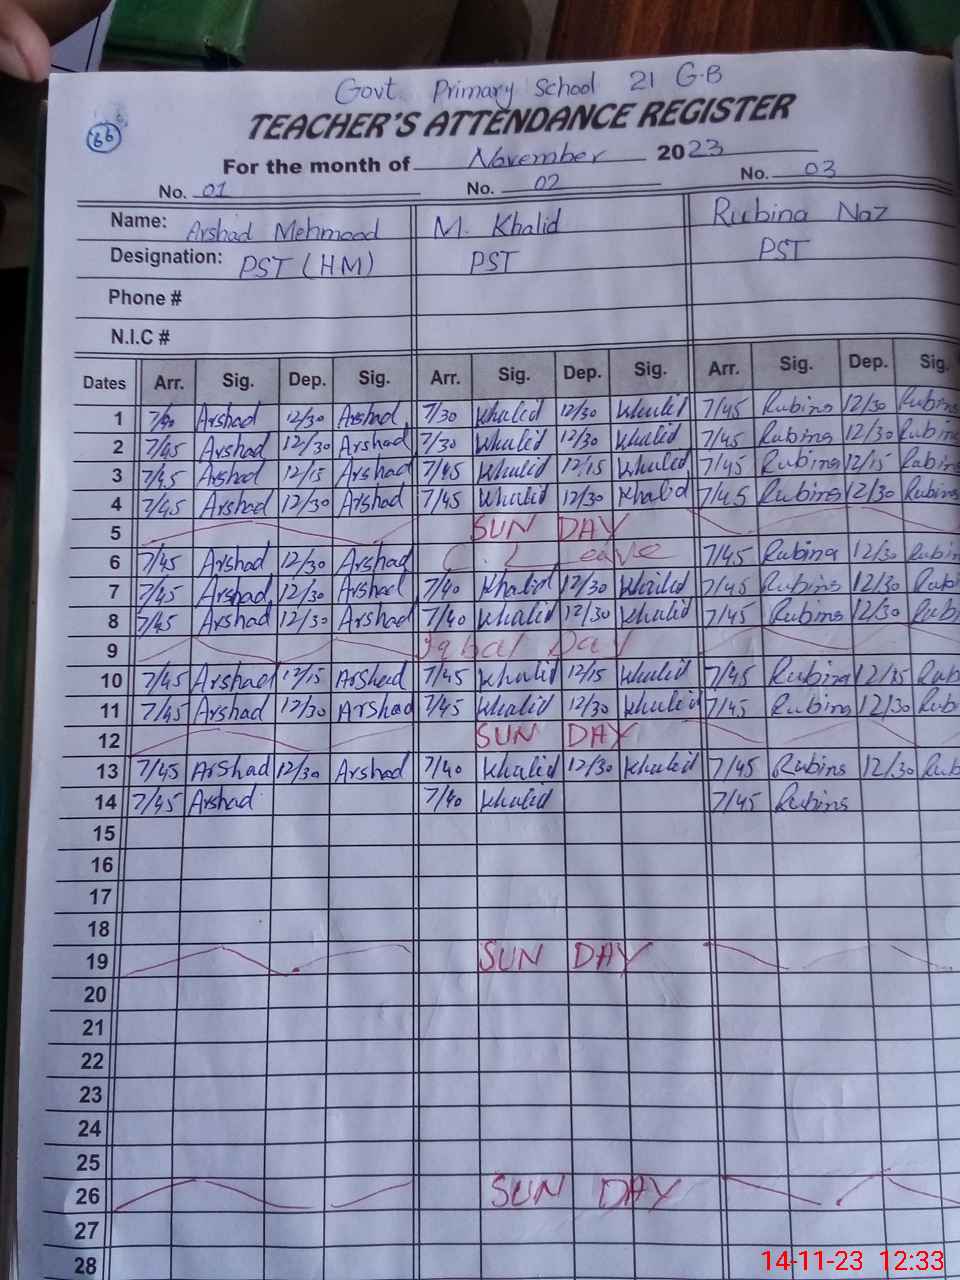 Govt. Primary School 21 G.B
66
TEACHER'S ATTENDANCE REGISTER
For the month of November 2023
No. 01 No. 02 No. 03
Name: Arshad Mehmood M. Khalid Rubina Naz
Designation: PST (HM) PST PST
Phone #
N.I.C #
Dates Arr. Sig. Dep. Sig. Arr. Sig. Dep. Sig. Arr. Sig. Dep. Sig.
1 Arshad 12/30 Arshad 7/30 Khalid 12/30 Khalid 7/45 Rubina 12/30 Rubina
2 7/45 Arshad 12/30 Arshad 7/30 Khalid 12/30 Khalid 7/45 Rubina 12/30 Rubin
3 7/45 Arshad 12/15 Arshad 7/45 Khalid 12/15 Khalid 7/45 Rubina 12/15 Rubina
4 7/45 Arshad 12/30 Arshad 7/45 Khalid 12/30 Khalid 7/45 Rubina 12/30 Rubina
5 SUN DAY
6 7/45 Arshad 12/30 Arshad C. Leave 7/45 Rubina 12/30 Rubin
7 7/45 Arshad 12/30 Arshad 7/40 Khalid 12/30 Khalid 7/45 Rubina 12/30 Rubi
8 7/45 Arshad 12/30 Arshad 7/40 Khalid 12/30 Khalid 7/45 Rubina 12/30 Rubi
9 Iqbal Day
10 7/45 Arshad 12/15 Arshad 7/45 Khalid 12/15 Khalid 7/45 Rubina Rub
11 7/45 Arshad 12/30 Arshad 7/45 Khalid 12/30 Khalid 7/45 Rubina 12/30 Rub
12 SUN DAY
13 7/45 Arshad 12/30 Arshad 7/40 Khalid 12/30 Khalid 7/45 Rubina 12/30 Rub
14 7/45 Arshad 7/40 Khalid 7/45 Rubina
15
16
17
18
19 SUN DAY
20
21
22
23
24
25
26 SUN DAY
27
28
14-11-23 12:33